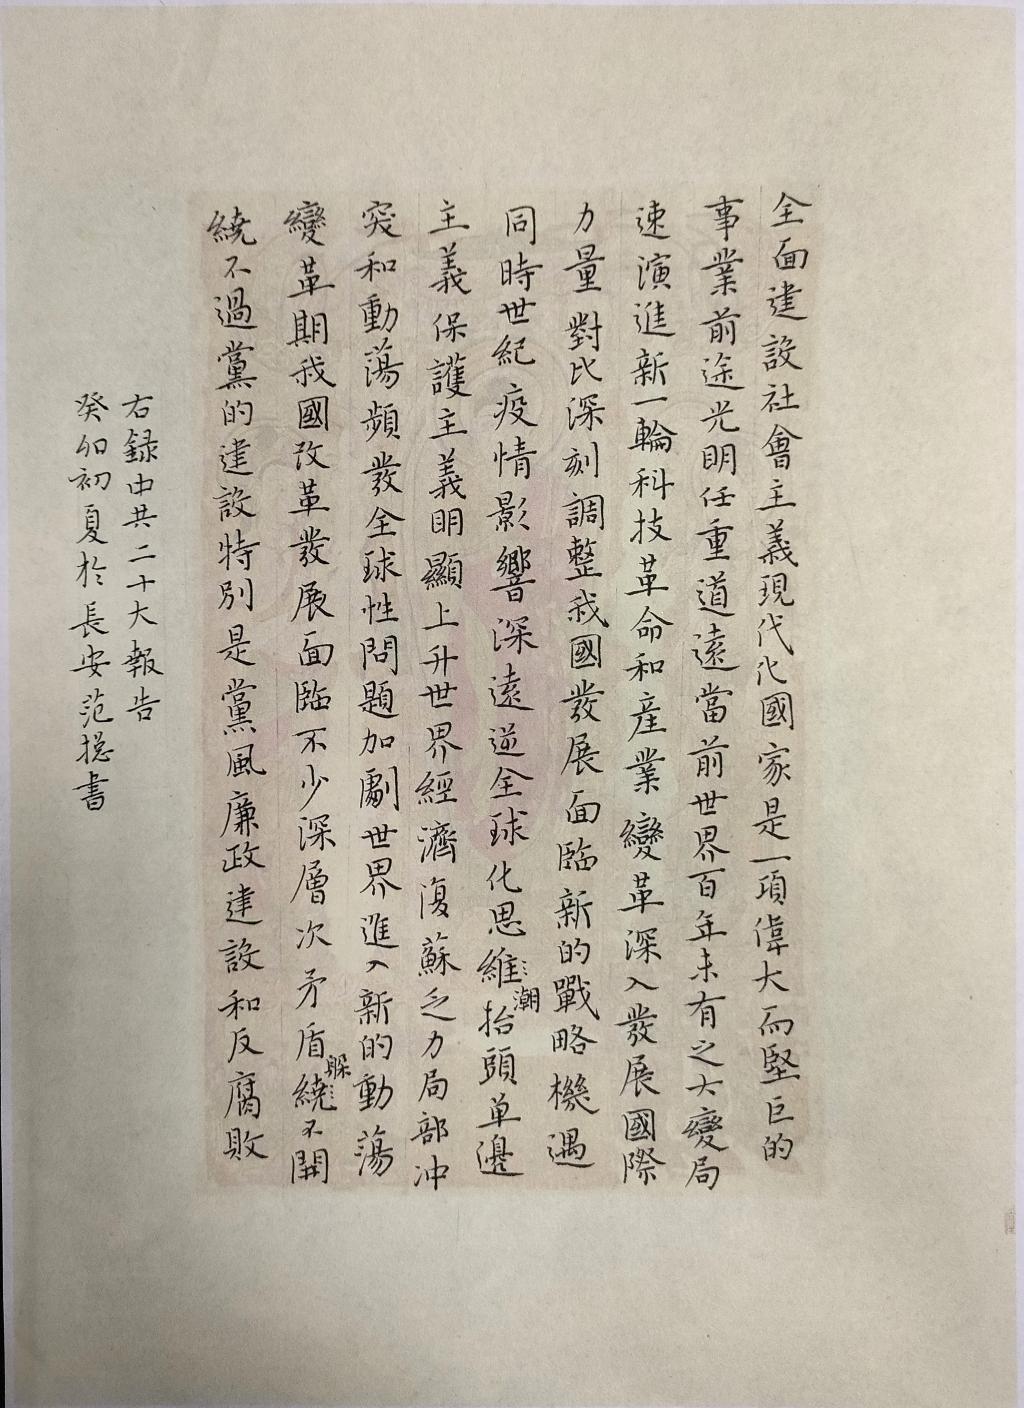 全面建設社會主義現代化國家是一項偉大而堅巨的
事業前途光明任重道遠當前世界百年未有之大變局
速演進新一輪科技革命和産業變革深入發展國際
力量對比深刻調整我國發展面臨新的戰略機遇
同時世紀疫情影響深遠逆全球化思維潮抬頭单邊
主義保護主義明顯上升世界經濟復蘇乏力局部冲
突和動蕩頻發全球性問題加劇世界進入新的動蕩
變革期我國改革發展面臨不少深層次矛盾繞躲不開
繞不過黨的建設特別是黨風廉政建設和反腐敗
右録中共二十大報告
癸卯初夏於長安范摐書